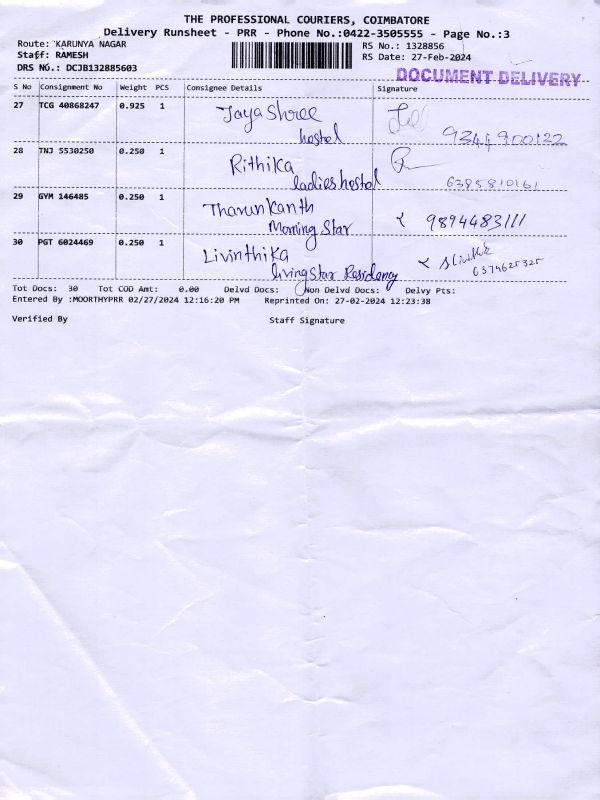 THE PROFESSIONAL COURIERS, COIMBATORE
Delivery Runsheet - PRR - Phone No.:0422-3505555 - Page No.:3
Route: KARUNYA NAGAR RS No.: 1328856
Staff: RAMESH RS Date: 27-Feb-2024
DRS No.: DCJB132885603
DOCUMENT DELIVERY
S No Consignment No Weight PCS Consignee Details Signature
27 TCG 40868247 0.925 1 Jaya Shree
hostel
28 TNJ 5530250 0.250 1 Rithika
ladies hostel 6385810161
29 GYM 146485 0.250 1 Tharun Kanth
Morning Star 9894483111
30 PGT 6024469 0.250 1 Livinthika
living Star Residency 6374625325
Tot Docs: 30 Tot COD Amt: 0.00 Delvd Docs: Non Delvd Docs: Delvy Pts:
Entered By :MOORTHYPRR 02/27/2024 12:16:20 PM Reprinted On: 27-02-2024 12:23:38
Verified By Staff Signature